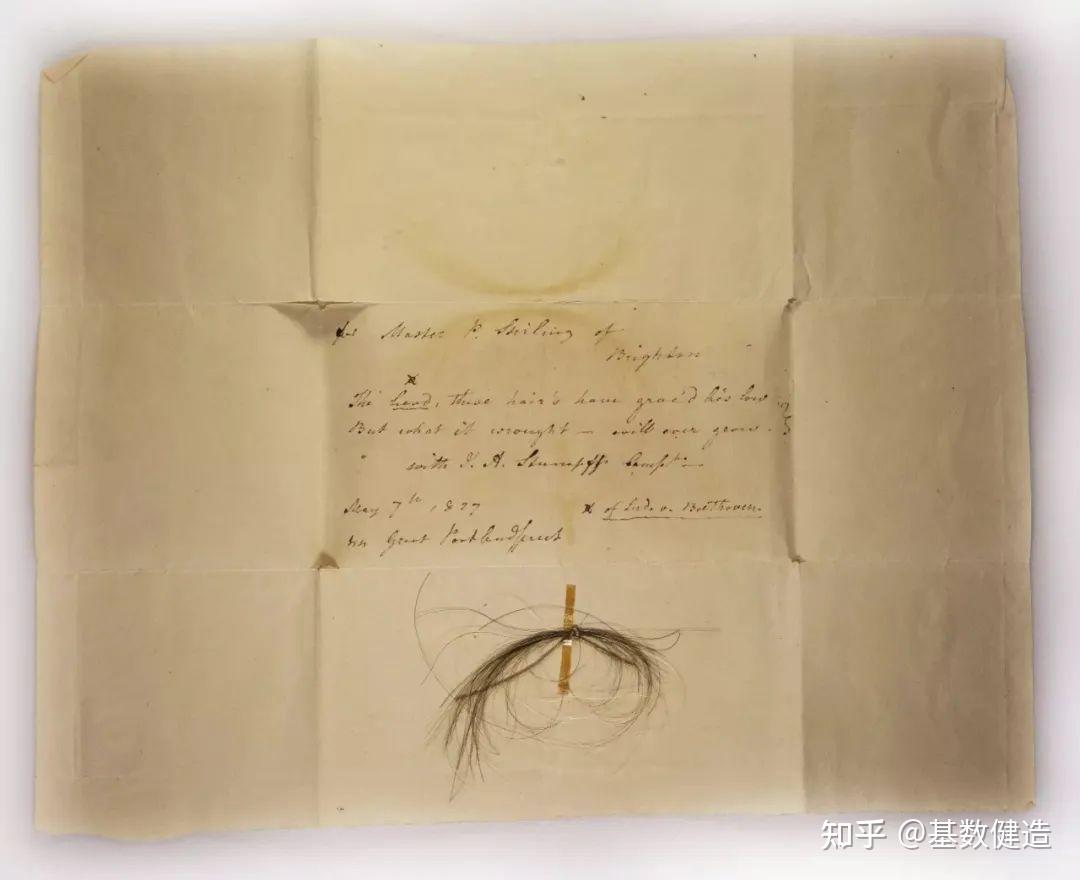 for Master P. Stirling of
Brighton
x
The head, these hair's have grac'd lies low
But what it wrought – will ever grow.
with J. A. Stumpff's Compts –
May 7th, 1827
x of Lud. v. Beethoven.
Great Portland Street
知乎 @基数健造